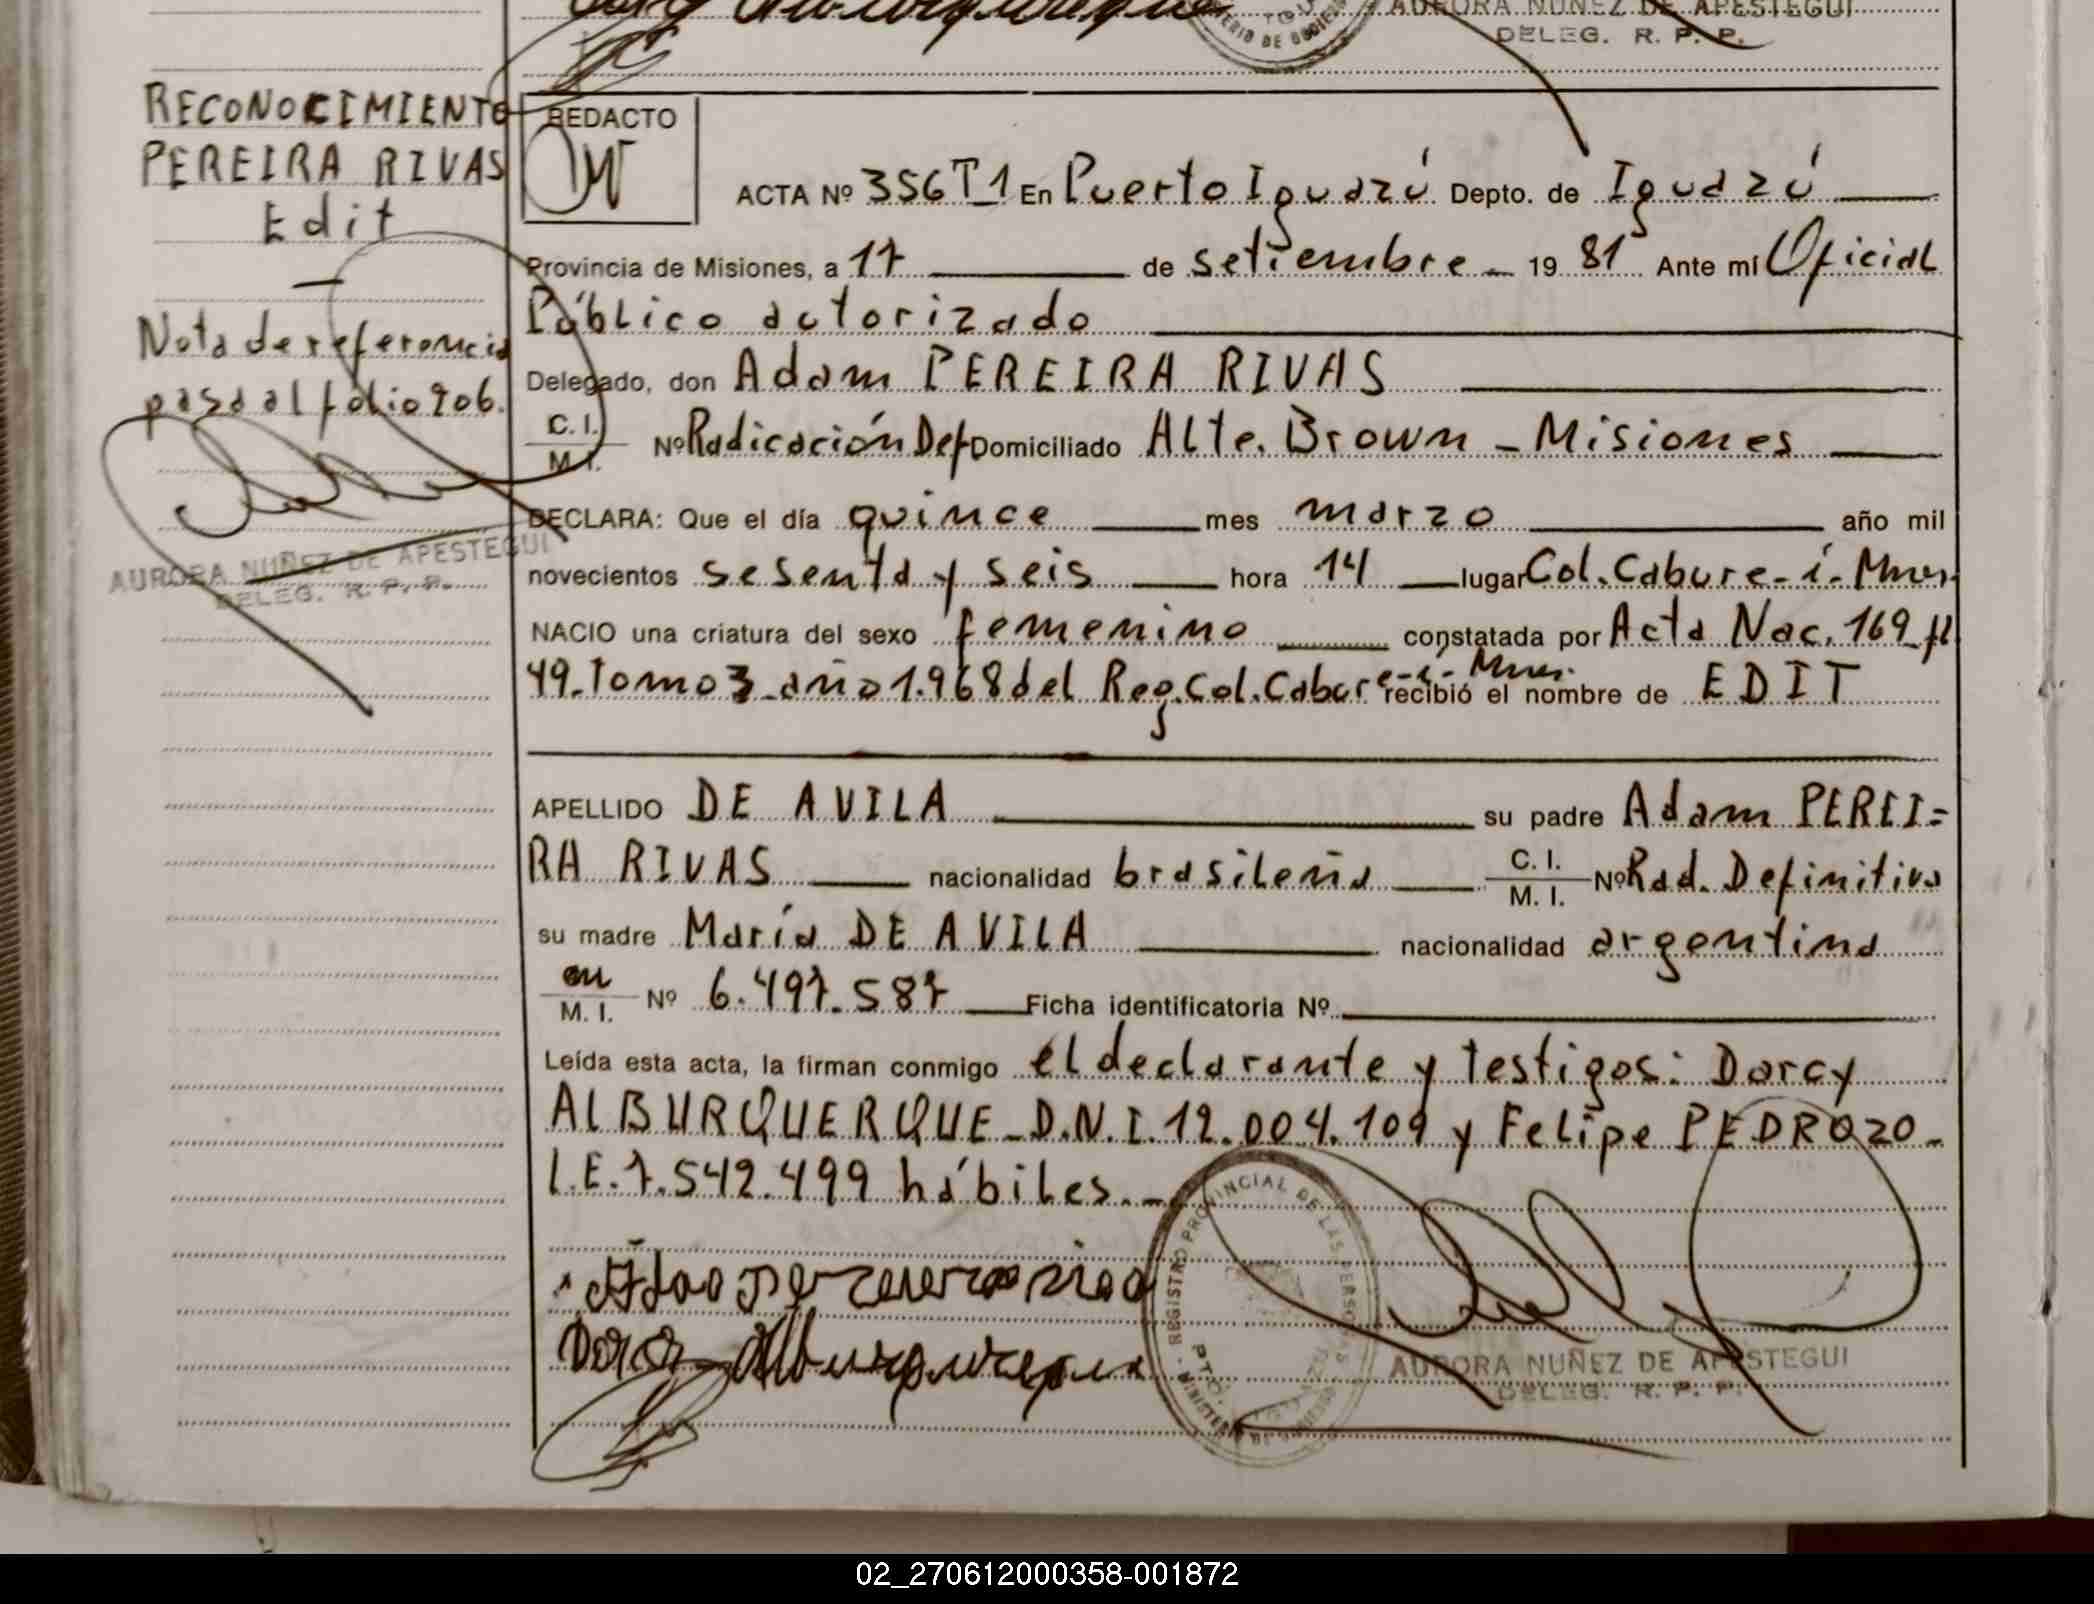 AURORA NUÑEZ DE APESTEGUI
DELEG. R. P. P.
RECONOCIMIENTO
PEREIRA RIVAS
Edit
—
Nota de referencia
pasa al folio 206.
AURORA NUÑEZ DE APESTEGUI
DELEG. R. P. P.
REDACTO
ACTA Nº 356 T 1 En Puerto Iguazú Depto. de Iguazú
Provincia de Misiones, a 17 de setiembre 19 81 Ante mí Oficial
Público autorizado
Delegado, don Adam PEREIRA RIVAS
C. I.
M. I. Nº Radicación Def Domiciliado Alte. Brown - Misiones
DECLARA: Que el día quince mes marzo año mil
novecientos sesenta y seis hora 14 lugar Col. Cabure-í-Mnes.
NACIO una criatura del sexo femenino constatada por Acta Nac. 169 fl
49. Tomo 3 año 1.968 del Reg. Col. Cabure-í-Mnes. recibió el nombre de EDIT
APELLIDO DE AVILA su padre Adam PEREI=
RA RIVAS nacionalidad brasileña C. I.
M. I. Nº Rad. Definitiva
su madre María DE AVILA nacionalidad argentina
M. I. Nº 6.497.587 Ficha identificatoria Nº
Leída esta acta, la firman conmigo el declarante y testigos: Darcy
ALBURQUERQUE - D.N.I. 12.004.109 y Felipe PEDROZO -
L.E. 7.542.499 hábiles. -
REGISTRO PROVINCIAL DE LAS PERSONAS
AURORA NUÑEZ DE APESTEGUI
DELEG. R. P. P.
02_270612000358-001872